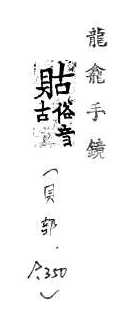 龍龕手鏡
俗音
古
(貝部.P.350)